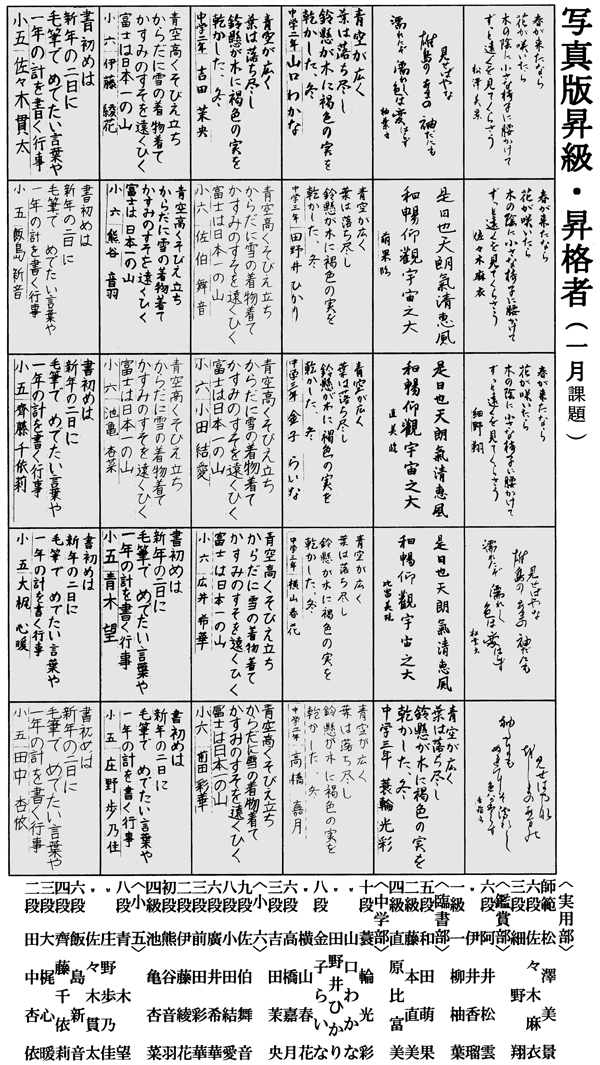 写真版昇級・昇格者（一月課題）
春が来たなら
花が咲いたら
木の陰に小さな椅子に腰かけて
ずっと遠くを見てくらさう
松澤美景
見せばやな
雄島のあまの袖だにも
濡れにぞ濡れし色は変はらず
青空が広く
葉は落ち尽し
鈴懸が水に褐色の実を
乾かした、冬
中学二年 山口わかな
青空が広く
葉は落ち尽し
鈴懸が水に褐色の実を
乾かした、冬
中学三年 吉田茉央
青空高くそびえ立ち
からだに雪の着物着て
かすみのすそを遠くひく
富士は日本一の山
小六 伊藤綾花
書初めは
新年の二日に
毛筆で めでたい言葉や
一年の計を書く行事
小五 佐々木貫太
春が来たなら
花が咲いたら
木の陰に小さな椅子に腰かけて
ずっと遠くを見てくらさう
佐々木麻衣
是日也天朗氣清恵風
和暢仰觀宇宙之大
萌果臨
青空が広く
葉は落ち尽し
鈴懸が水に褐色の実を
乾かした、冬
中学三年 田野井ひかり
青空高くそびえ立ち
からだに雪の着物着て
かすみのすそを遠くひく
富士は日本一の山
小六 佐伯舞音
青空高くそびえ立ち
からだに雪の着物着て
かすみのすそを遠くひく
富士は日本一の山
小六 熊谷音羽
書初めは
新年の二日に
毛筆で めでたい言葉や
一年の計を書く行事
小五 飯島新音
春が来たなら
花が咲いたら
木の陰に小さな椅子に腰かけて
ずっと遠くを見てくらさう
細野翔
是日也天朗氣清恵風
和暢仰觀宇宙之大
直美臨
青空が広く
葉は落ち尽し
鈴懸が水に褐色の実を
乾かした、冬
中学三年 金子らいな
青空高くそびえ立ち
からだに雪の着物着て
かすみのすそを遠くひく
富士は日本一の山
小六 小田結愛
青空高くそびえ立ち
からだに雪の着物着て
かすみのすそを遠くひく
富士は日本一の山
小六 池亀杏菜
書初めは
新年の二日に
毛筆で めでたい言葉や
一年の計を書く行事
小五 齊藤千依莉
見せばやな
雄島のあまの袖だにも
濡れにぞ濡れし
色は変はらず
是日也天朗氣清恵風
和暢仰觀宇宙之大
比富美臨
青空が広く
葉は落ち尽し
鈴懸が水に褐色の実を
乾かした、冬
中学三年 横山春花
青空高くそびえ立ち
からだに雪の着物着て
かすみのすそを遠くひく
富士は日本一の山
小六 広井希華
書初めは
新年の二日に
毛筆で めでたい言葉や
一年の計を書く行事
小五 青木望
書初めは
新年の二日に
毛筆で めでたい言葉や
一年の計を書く行事
小五 大梶心暖
青空が広く
葉は落ち尽し
鈴懸が水に褐色の実を
乾かした、冬
中学三年 蓑輪光彩
青空が広く
葉は落ち尽し
鈴懸が水に褐色の実を
乾かした、冬
中学二年 高橋嘉月
青空高くそびえ立ち
からだに雪の着物着て
かすみのすそを遠くひく
富士は日本一の山
小六 前田彩華
書初めは
新年の二日に
毛筆で めでたい言葉や
一年の計を書く行事
小五 庄野歩乃佳
書初めは
新年の二日に
毛筆で めでたい言葉や
一年の計を書く行事
小五 田中杏依
〈実用部〉
師範 松澤美景
六段 佐々木麻衣
三段 細野翔
〈鑑賞部〉
六段
一級 柳柚葉
〈臨書部〉
五段 和田萌果
二級 藤本直美
四級 直原比富美
〈中学部〉
十段 蓑輪光彩
〃 山口わかな
〃 田野井ひかり
八段 金子らいな
〃 横山春花
六段 高橋嘉月
三段 吉田茉央
〈小六〉
九段 佐伯舞音
八段 小田結愛
六段 広井希華
三段 前田彩華
二段 伊藤綾花
初段 熊谷音羽
四級 池亀杏菜
〈小五〉
八段 青木望
〃 庄野歩乃佳
〃 佐々木貫太
六段 飯島新音
四段 齊藤千依莉
三段 大梶心暖
二段 田中杏依